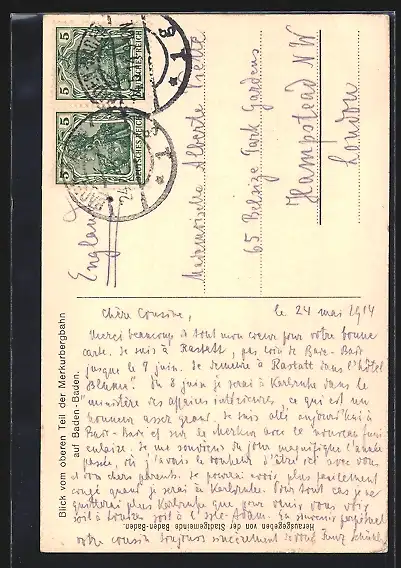 5 DEUTSCHES REICH
5 DEUTSCHES REICH
BADEN
England
Mademoiselle Alberte
65 Belsize Park Gardens
Hampstead NW
London
Blick vom oberen Teil der Merkurbergbahn
auf Baden-Baden.
Herausgegeben von der Stadtgemeinde Baden-Baden.
le 24 mai 1914
Chère Cousine,
Merci beaucoup de tout mon coeur pour votre bonne
carte. Je suis à Rastatt, pas loin de Bade-Bade
jusque le 7 juin. Je demeure à Rastatt dans l'hôtel
"Blume". Du 8 juin je serai à Karlsruhe dans le
"ministère des affaires intérieures, ce qui est un
honneur assez grand. Je suis allé aujourd'hui à
Bade-Bade et sur le Merkur avec le nouveau funi-
culaire. Je me souviens du jour magnifique l'année
passée, où j'avais le bonheur d'être ici avec vous
et vos chers parents. Je pourrai avoir plus facilement
congé quand je serai à Karlsruhe. Pour tout cas je ne
quitterai plus Karlsruhe que pour venir vous voir
soit à Londres soit à l'Isle-Adam. En souvenir perpétuel
votre cousin toujours sincèrement dévoué